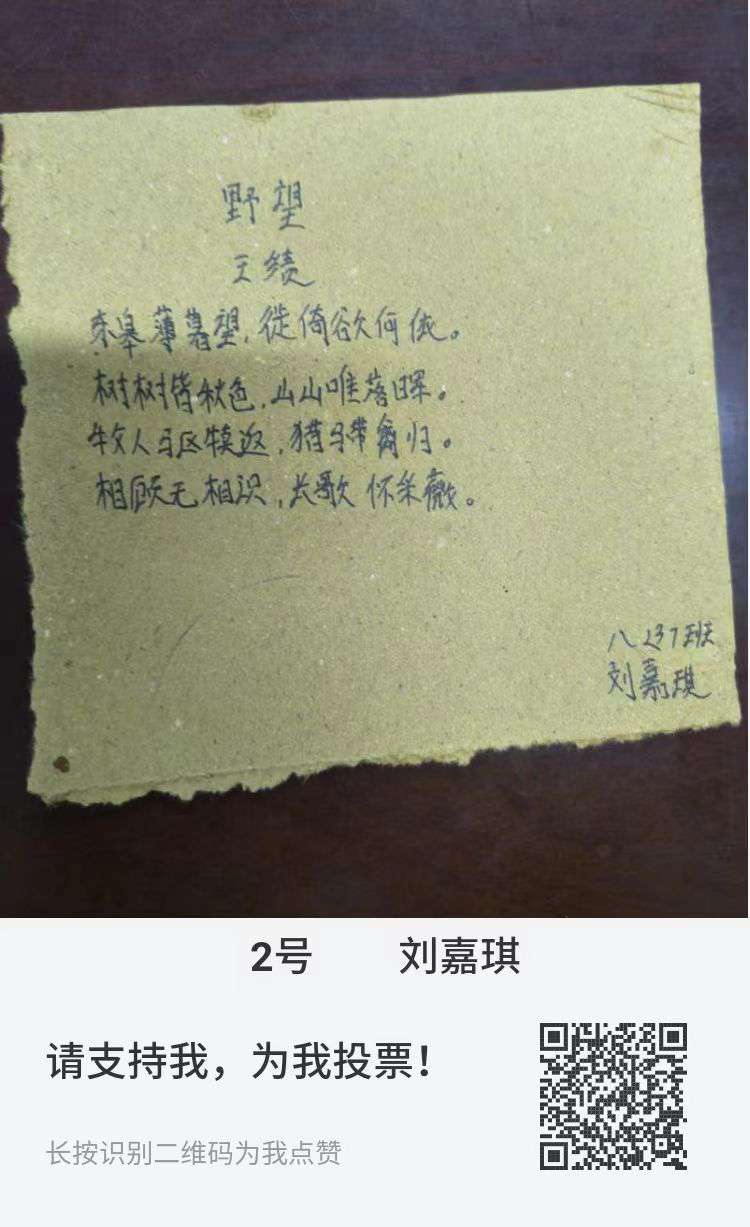 野望
王绩
东皋薄暮望，徙倚欲何依。
树树皆秋色，山山唯落晖。
牧人驱犊返，猎马带禽归。
相顾无相识，长歌怀采薇。
八237班
刘嘉琪
2号 刘嘉琪
请支持我，为我投票！
长按识别二维码为我点赞